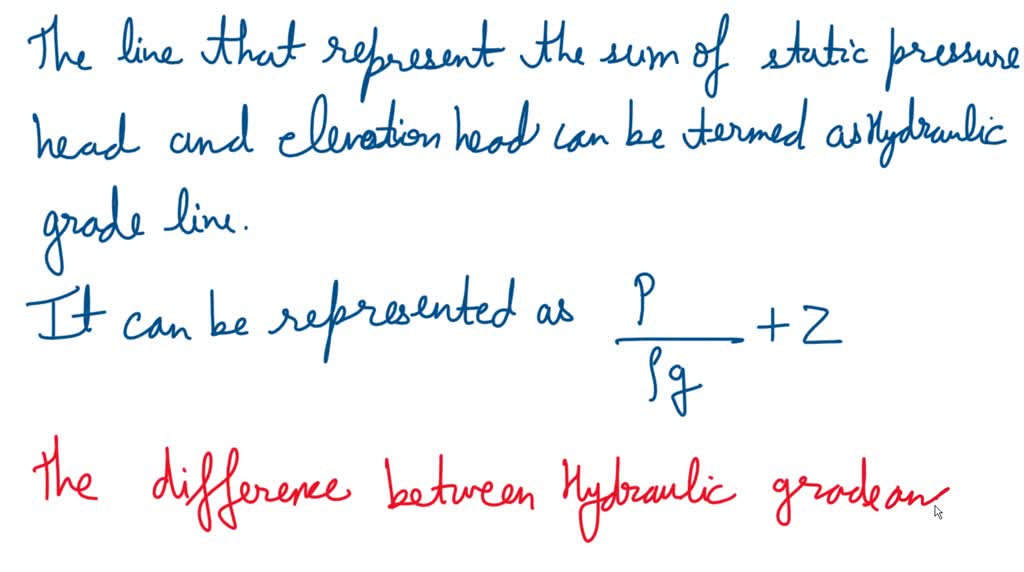 The line that represent the sum of static pressure
head and elevation head can be termed as Hydraulic
grade line.
It can be represented as P/ρg + Z
The difference between Hydraulic grade an